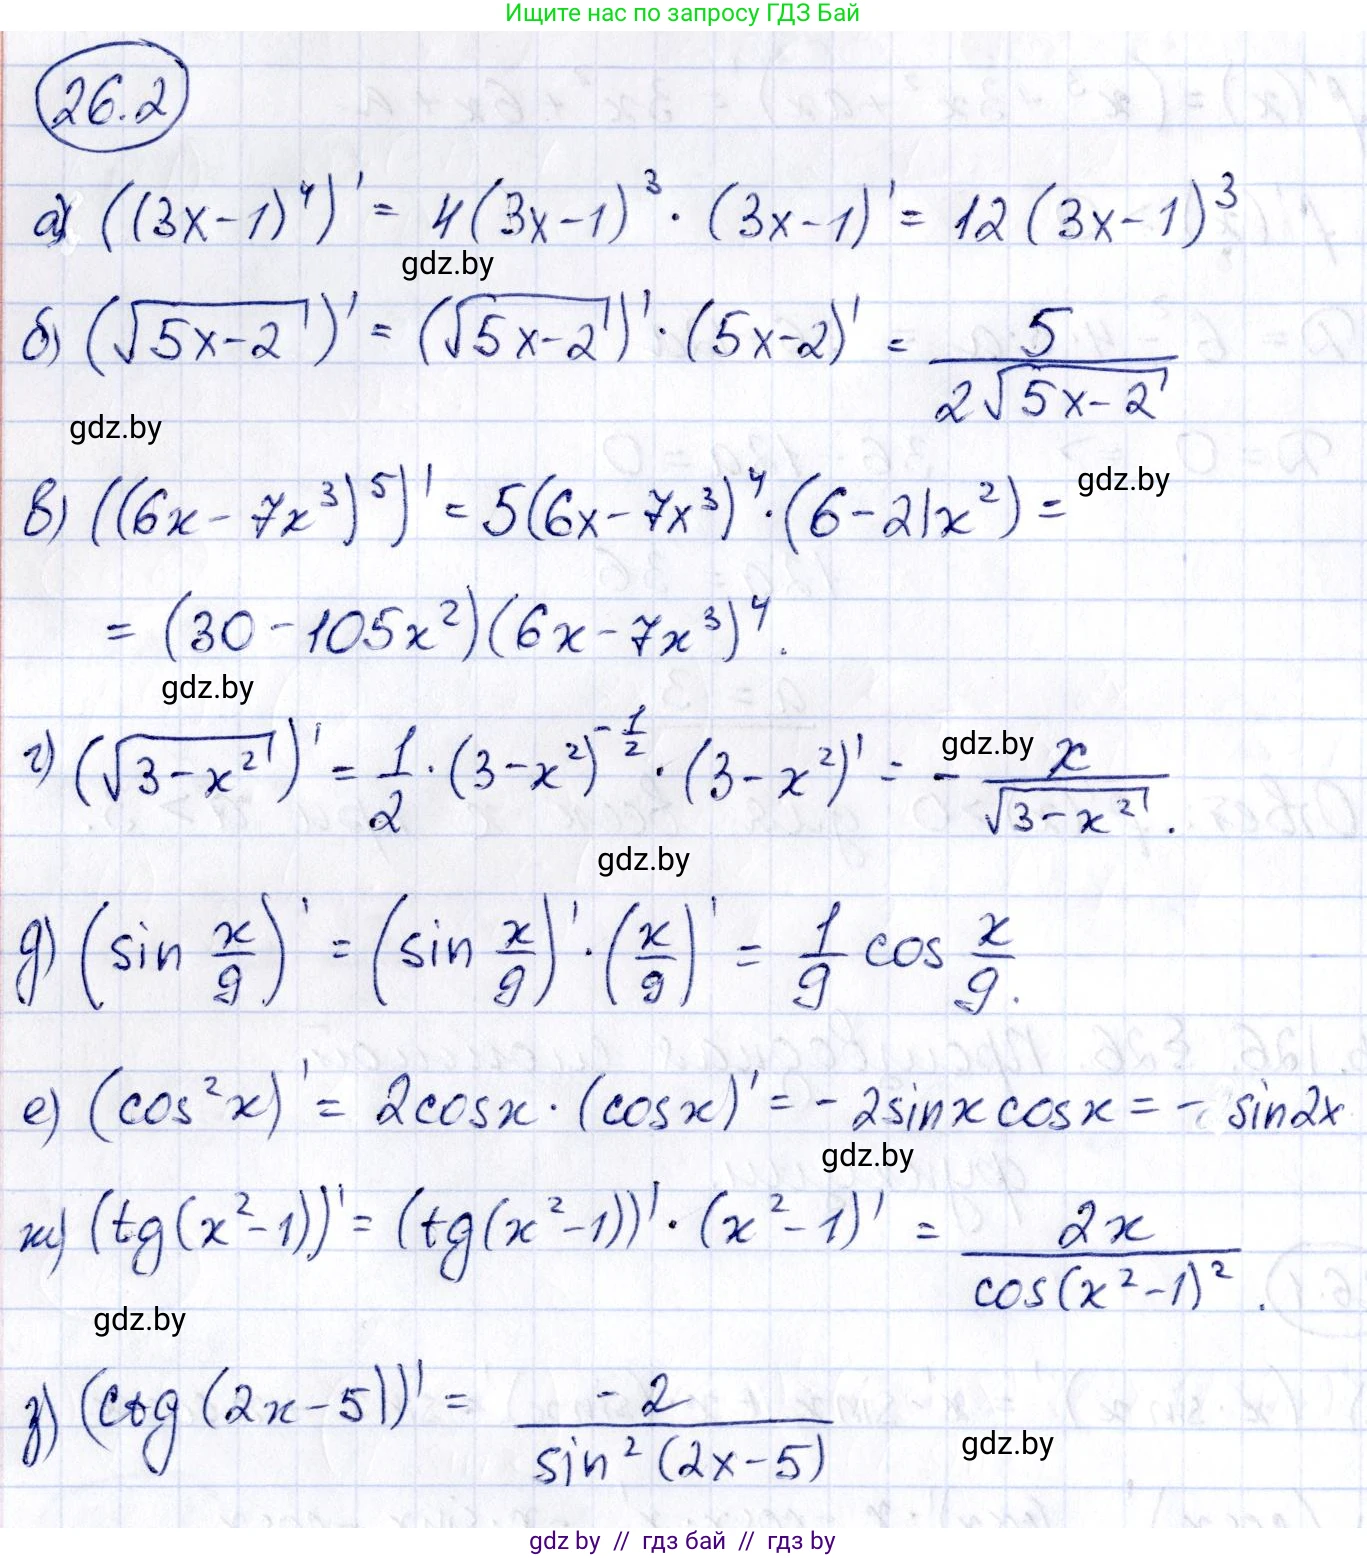 Ищите нас по запросу ГДЗ Бай
26.2
а) ((3x-1)⁴)' = 4(3x-1)³·(3x-1)' = 12(3x-1)³
gdz.by
б) (√(5x-2))' = (√(5x-2))'·(5x-2)' = 5/(2√(5x-2))
gdz.by
gdz.by
в) ((6x-7x³)⁵)' = 5(6x-7x³)⁴·(6-21x²) =
= (30-105x²)(6x-7x³)⁴.
gdz.by
gdz.by
г) (√(3-x²))' = 1/2·(3-x²)^(-1/2)·(3-x²)' = - x/√(3-x²).
gdz.by
д) (sin x/9)' = (sin x/9)'·(x/9)' = 1/9 cos x/9.
е) (cos²x)' = 2cosx·(cosx)' = -2sinx cosx = - sin2x
gdz.by
ж) (tg(x²-1))' = (tg(x²-1))'·(x²-1)' = 2x/cos(x²-1)².
gdz.by
з) (ctg(2x-5))' = -2/sin²(2x-5)
gdz.by
gdz by // гдз бай // gdz by